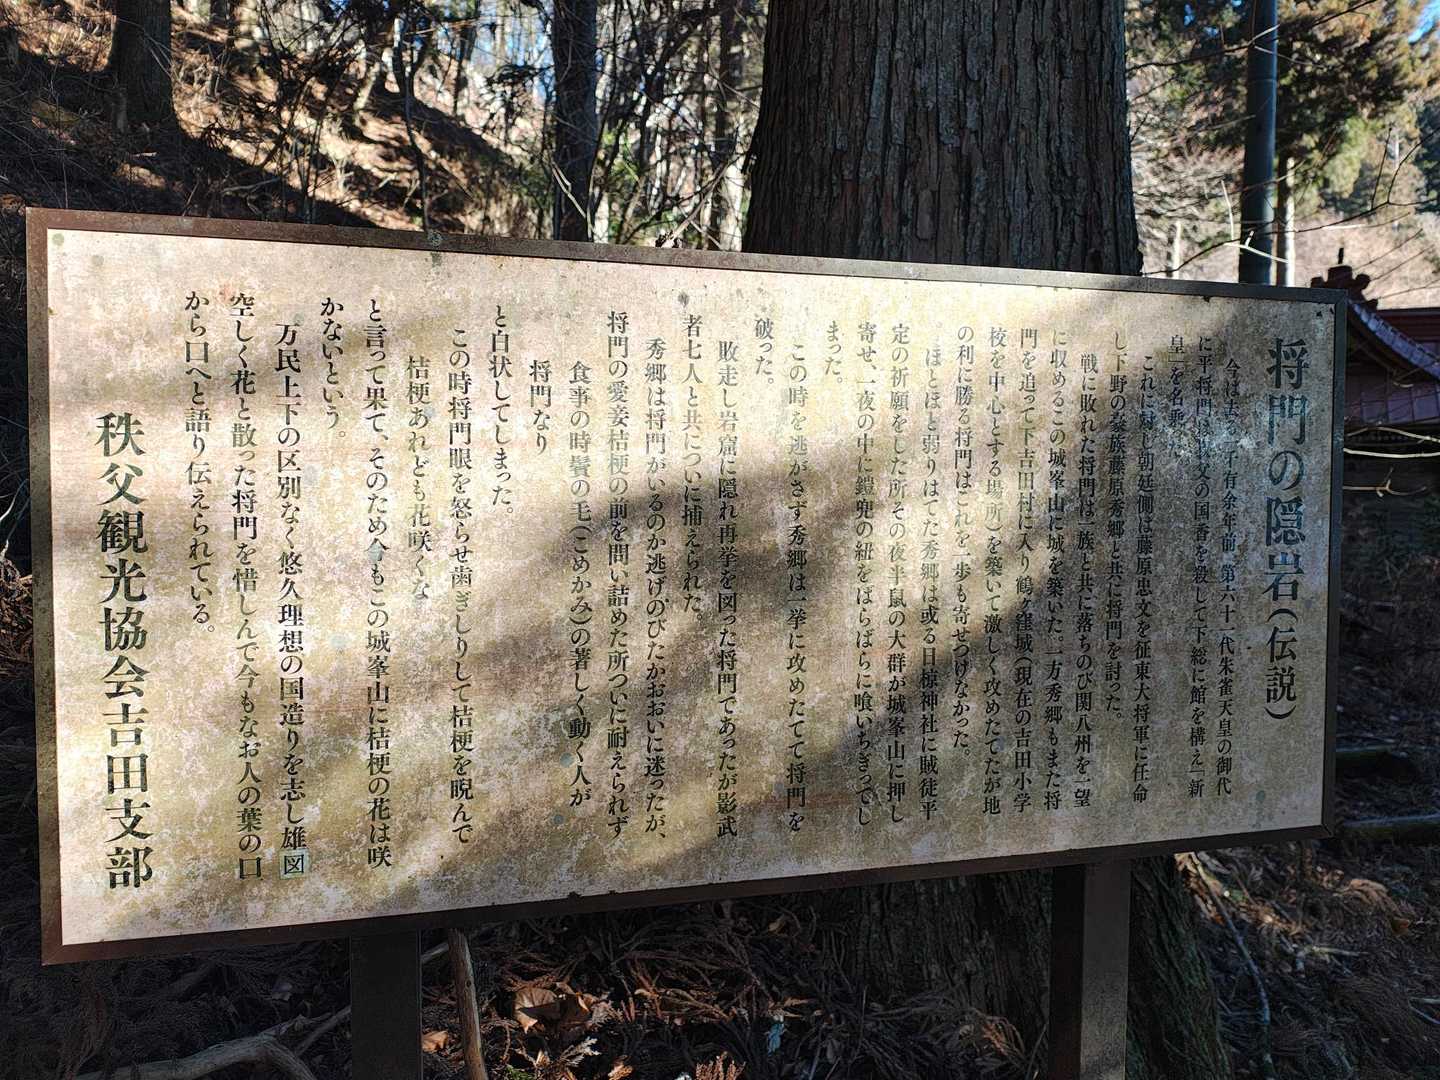 将門の隠岩(伝説)
今は去る 千有余年前 第六十一代朱雀天皇の御代
に平 将門は 父の国香を殺して下総に館を構え「新
皇」を名乗
これに対し朝廷側は藤原忠文を征東大将軍に任命
し下野の豪族藤原秀郷と共に将門を討った。
戦に敗れた将門は一族と共に落ちのび関八州を一望
に収めるこの城峯山に城を築いた。一方秀郷もまた将
門を追って下吉田村に入り鶴ヶ窪城(現在の吉田小学
校を中心とする場所)を築いて激しく攻めたてたが地
の利に勝る将門はこれを一歩も寄せつけなかった。
ほとほと弱りはてた秀郷は或る日椋神社に賊徒平
定の祈願をした所その夜半鼠の大群が城峯山に押し
寄せ、一夜の中に鎧兜の紐をばらばらに喰いちぎってし
まった。
この時を逃がさず秀郷は一挙に攻めたてて将門を
破った。
敗走し岩窟に隠れ再挙を図った将門であったが影武
者七人と共についに捕えられた。
秀郷は将門がいるのか逃げのびたかおおいに迷ったが、
将門の愛妾桔梗の前を問い詰めた所ついに耐えられず
食事の時鬢の毛(こめかみ)の著しく動く人が
将門なり
と白状してしまった。
この時将門眼を怒らせ歯ぎしりして桔梗を睨んで
桔梗あれども花咲くな
と言って果て、そのため今もこの城峯山に桔梗の花は咲
かないという。
万民上下の区別なく悠久理想の国造りを志し雄図
空しく花と散った将門を惜しんで今もなお人の葉の口
から口へと語り伝えられている。
秩父観光協会吉田支部